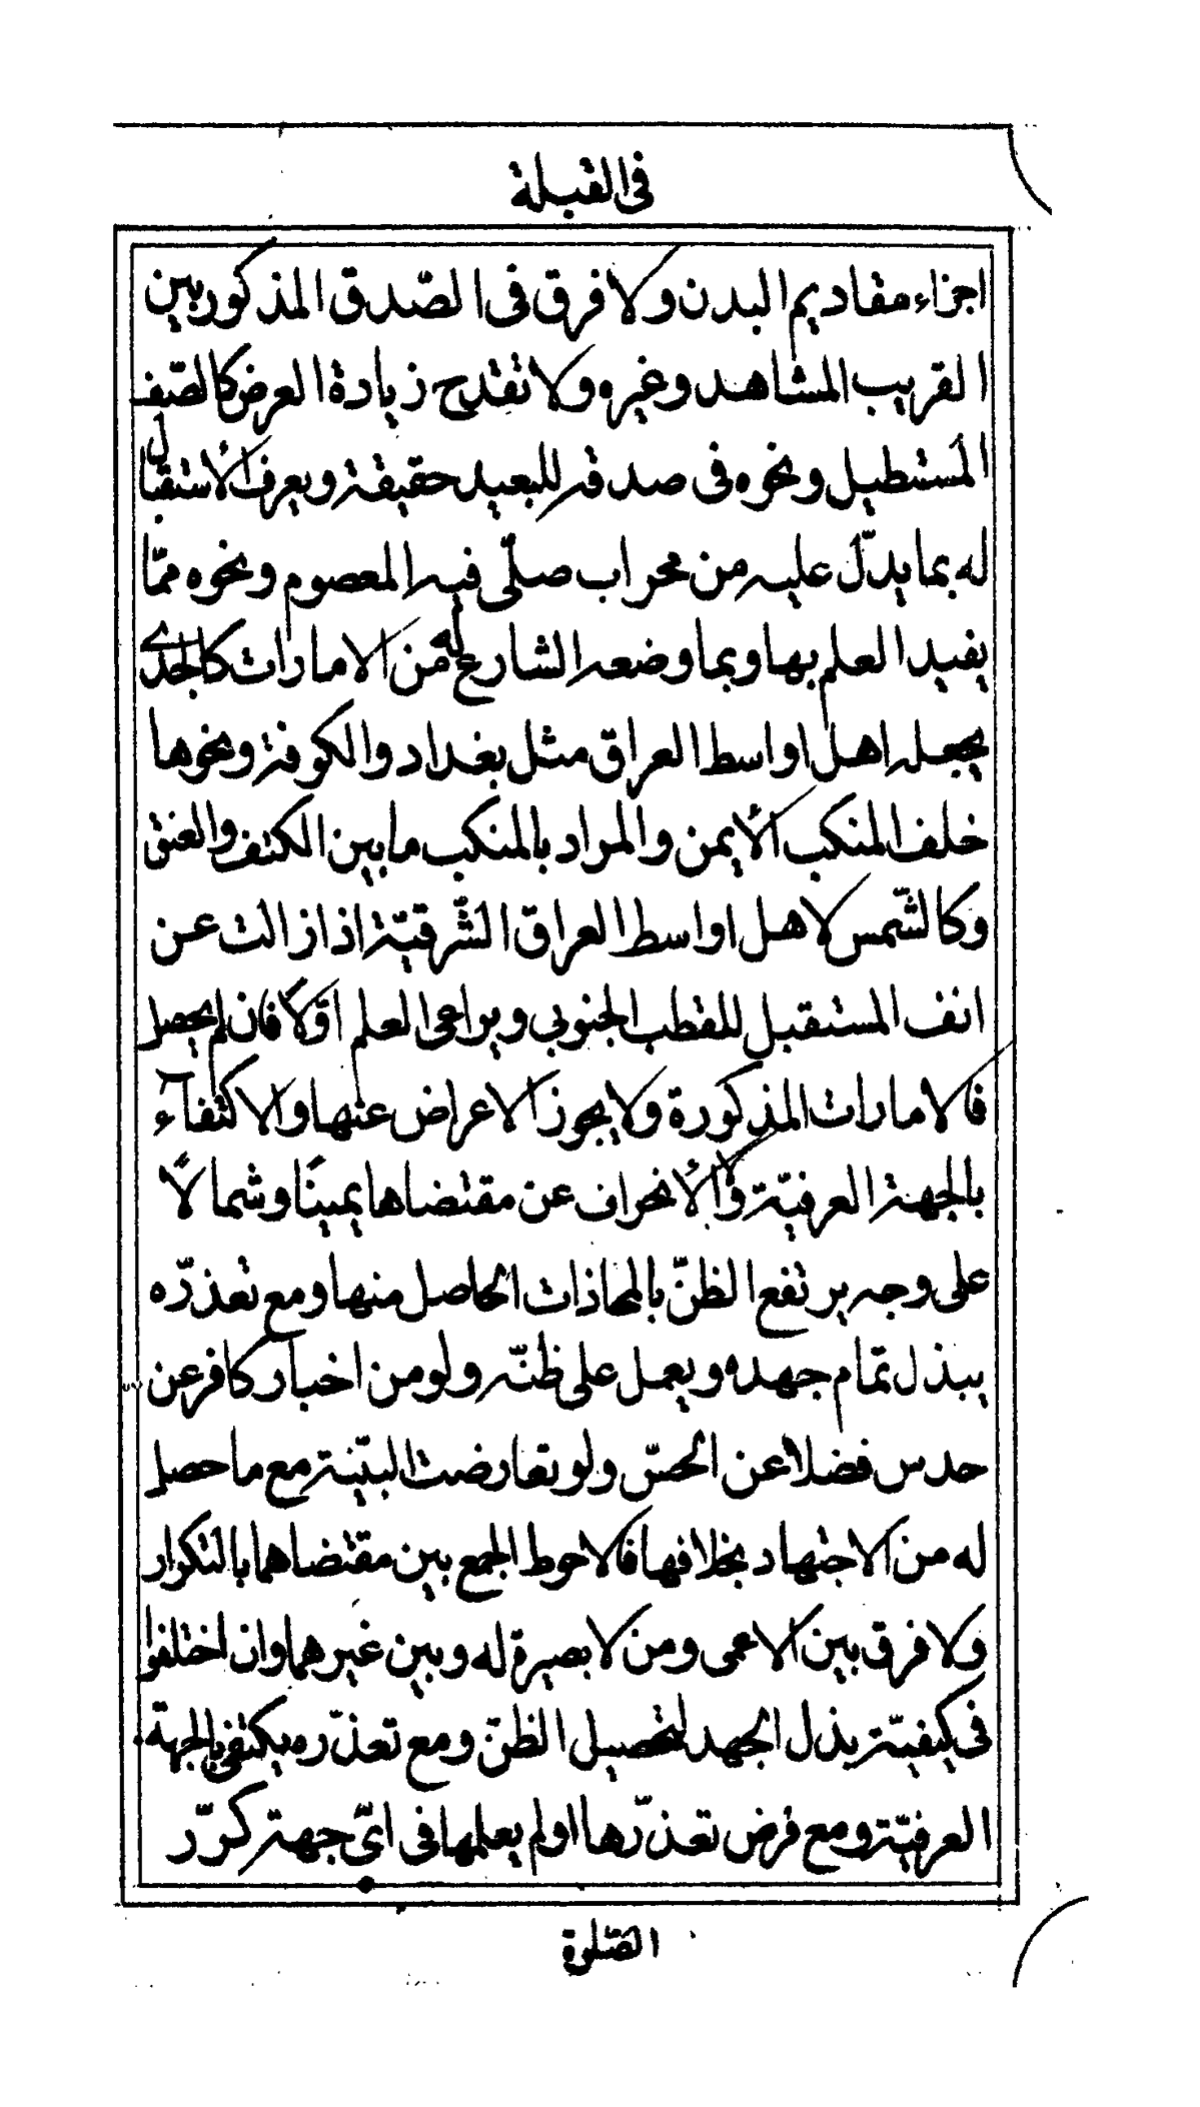 فى القبلة
اجزاء مقاديم البدن ولا فرق فى الصّدق المذكور بين
القريب المشاهد وغيره ولا تقدح زيادة العرض كالصّف
المستطيل ونحوه فى صدقه للبعيد حقيقة ويعرف الأستقبال
له بما يدلّ عليه من محراب صلّى فيه المعصوم ونحوه ممّا
يفيد العلم بها وبما وضعه الشارع له من الامارات كالجدى
يجعله اهل اواسط العراق مثل بغداد والكوفة ونحوها
خلف المنكب الأيمن والمراد بالمنكب ما بين الكتف والعنق
وكالشّمس لاهل اواسط العراق الشّرقيّة اذا زالت عن
انف المستقبل للقطب الجنوبى ويراعى العلم اوّلا فان لم يحصل
فالامارات المذكورة ولا يجوز الاعراض عنها والاكتفآء
بالجهة العرفيّة ولا الأنحراف عن مقتضاها يمينًا وشمالًا
على وجه يرتفع الظنّ بالمحاذات الحاصل منها ومع تعذّره
يبذل تمام جهده ويعمل على ظنّه ولو من اخبار كافر عن
حدس فضلا عن الحسّ ولو تعارضت البيّنة مع ما حصل
له من الاجتهاد بخلافها فالاحوط الجمع بين مقتضاهما بالتكرار
ولا فرق بين الاعمى ومن لا بصيرة له وبين غيرهما وان اختلفوا
فى كيفيّة بذل الجهد لتحصيل الظنّ ومع تعذّره يكتفى بالجهة
العرفيّة ومع فرض تعذّرها او لم يعلمها فى اىّ جهة كرّر
الصّلوة